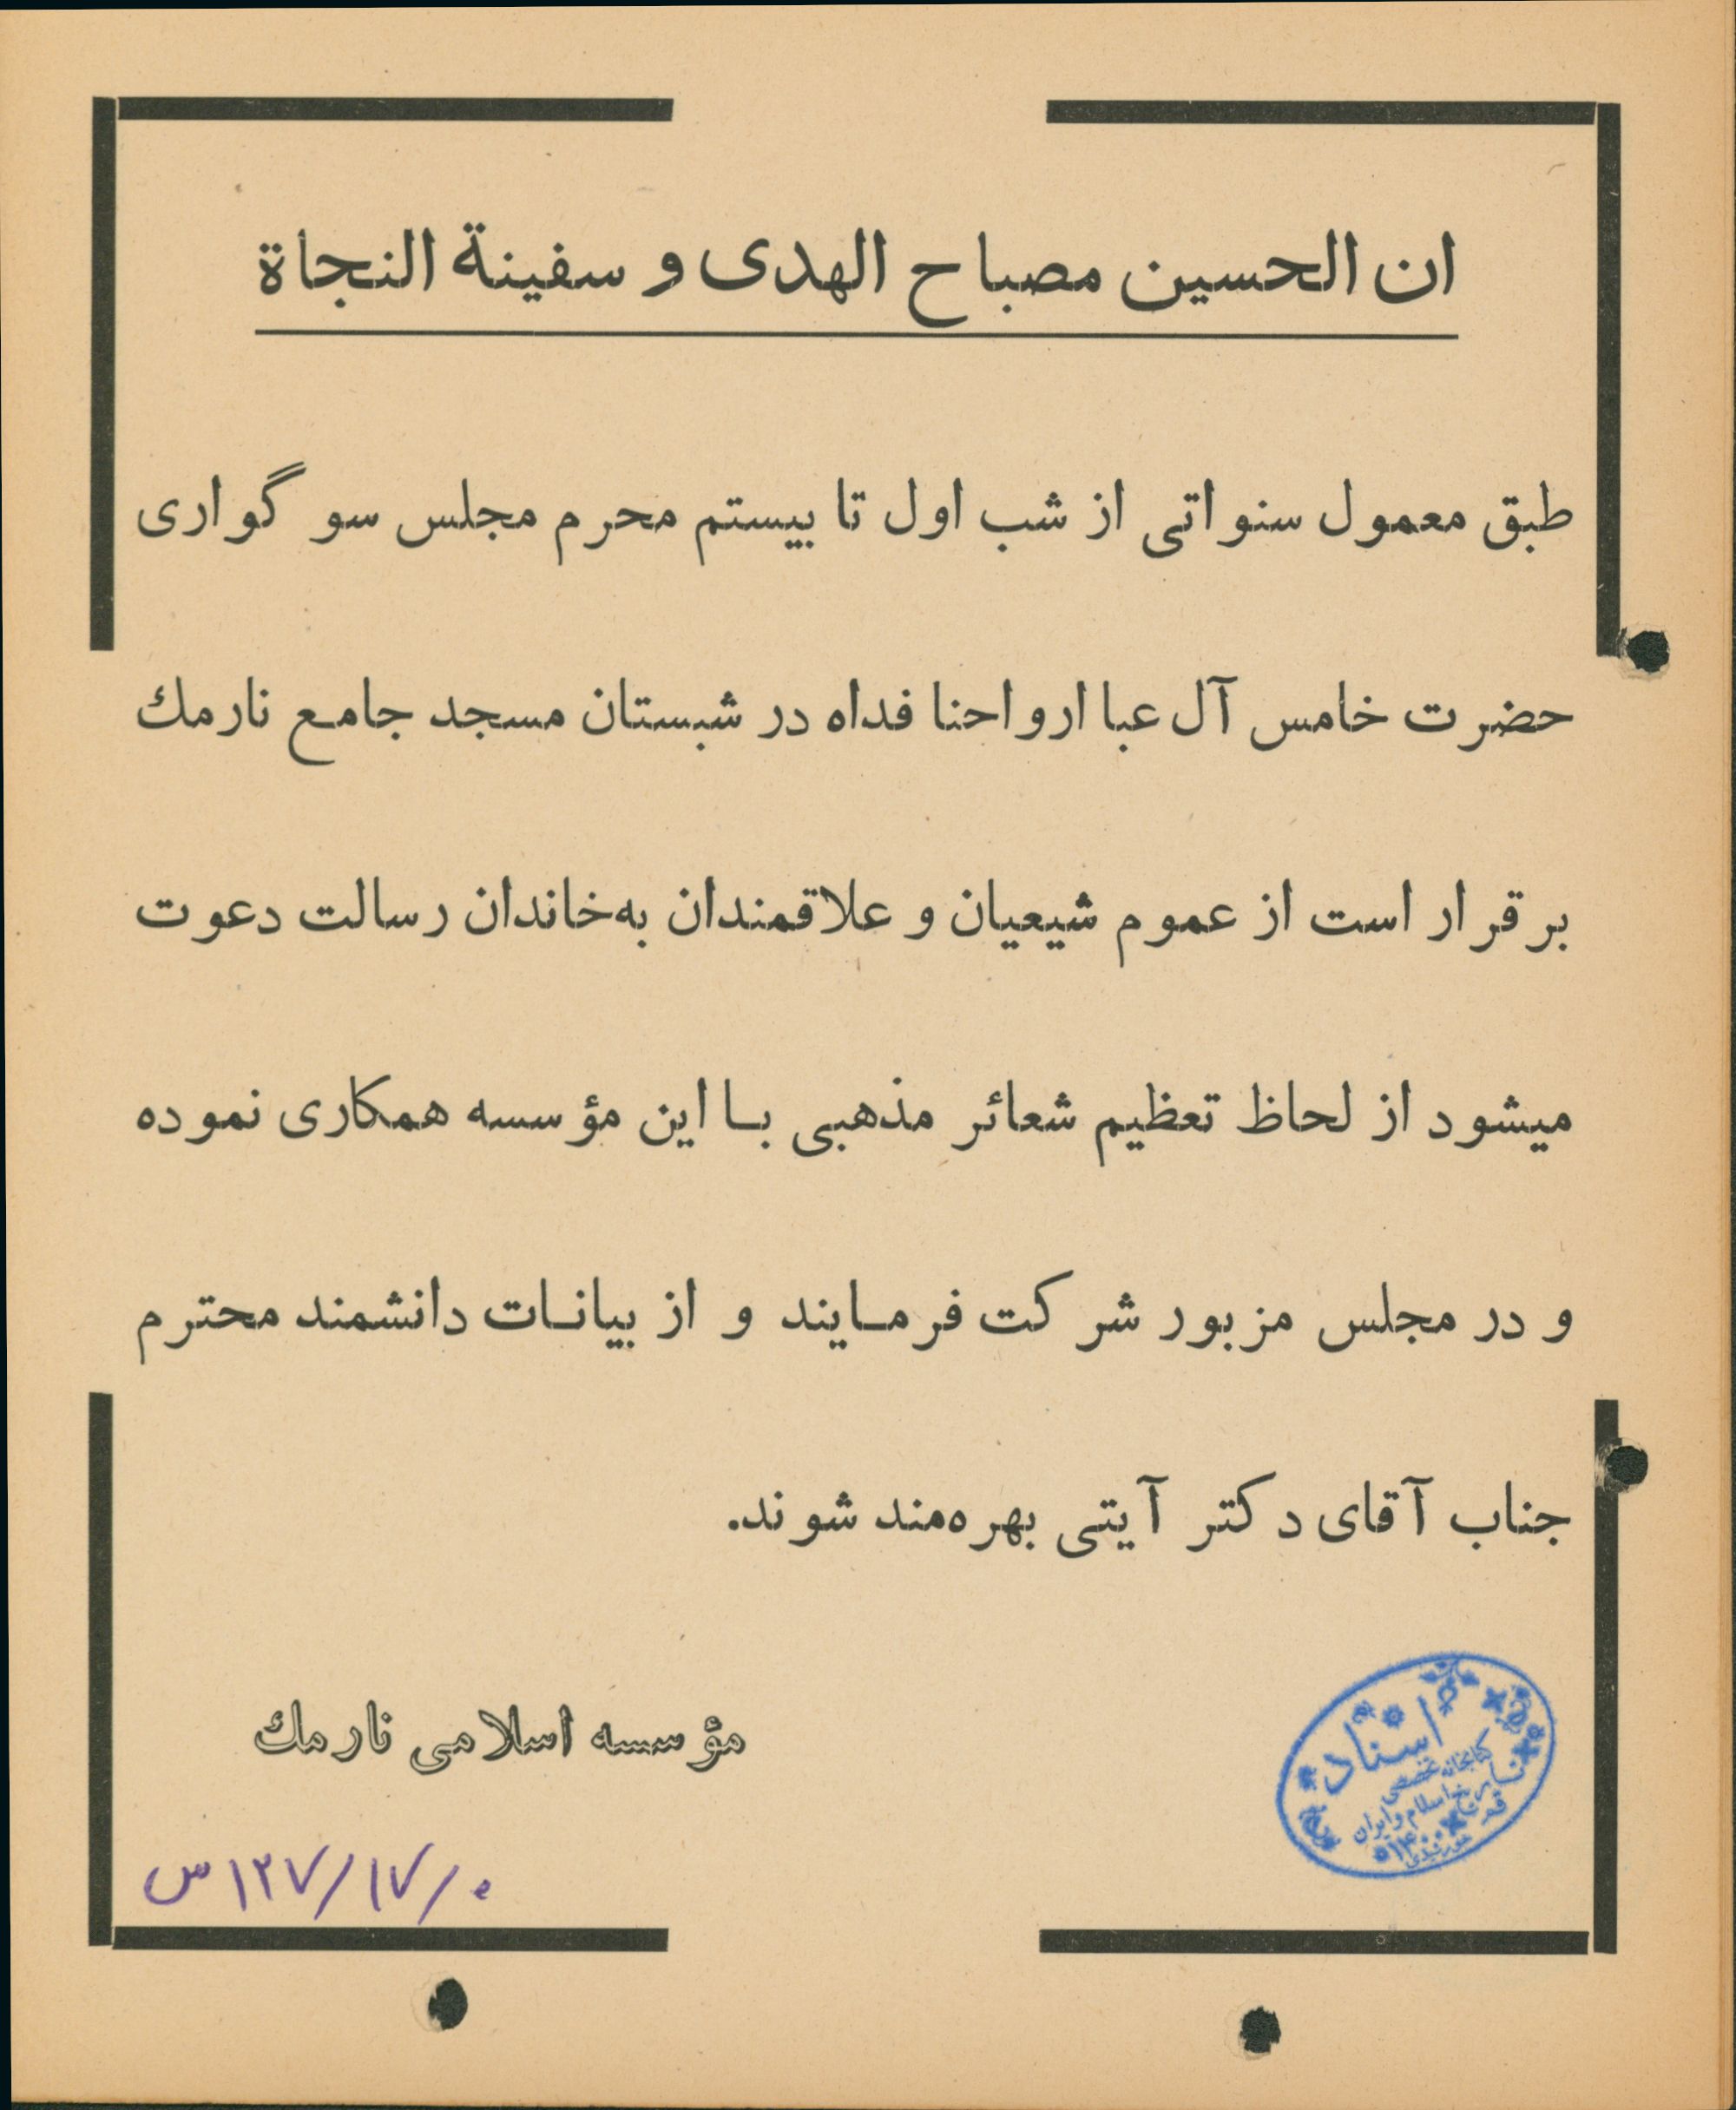 ان الحسین مصباح الهدی و سفینة النجاة
طبق معمول سنواتی از شب اول تا بیستم محرم مجلس سوگواری
حضرت خامس آل عبا ارواحنا فداه در شبستان مسجد جامع نارمك
برقرار است از عموم شیعیان و علاقمندان به‌خاندان رسالت دعوت
میشود از لحاظ تعظیم شعائر مذهبی با این مؤسسه همکاری نموده
و در مجلس مزبور شرکت فرمایند و از بیانات دانشمند محترم
جناب آقای دکتر آیتی بهره‌مند شوند.
مؤسسه اسلامی نارمك
اسناد
کتابخانه تخصصی
تاریخ اسلام و ایران
قم
۱۲۷/۱۷/۰ س